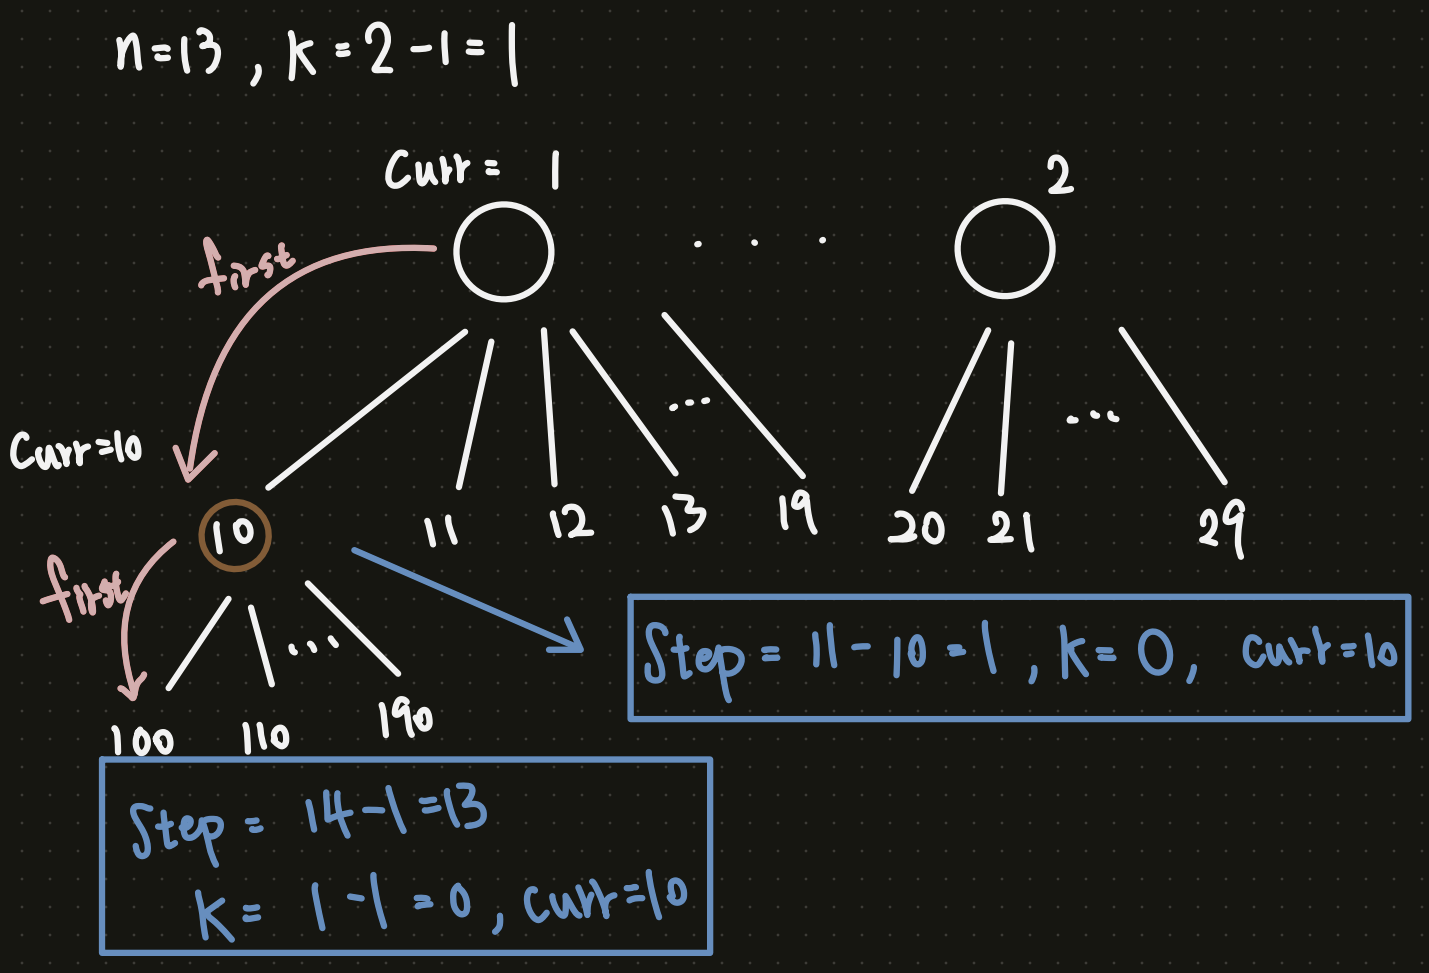 n=13 , k=2-1=1
Curr = 1
2
first
...
Curr=10
...
...
10
11
12
13
19
20
21
29
first
...
Step = 11-10=1 , k=0, Curr=10
100
110
190
Step = 14-1=13
k= 1-1=0 , Curr=10